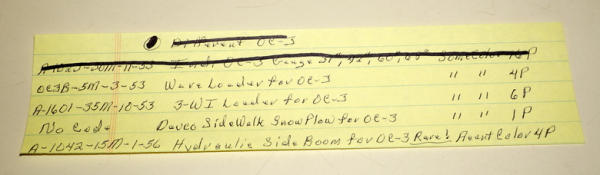 Different OC-3
A-1023-30M-11-53 OC-3 Gauge 31", 42", 60", 68" Some Color 12 P
OC3B-5M-3-53 Ware Loader for OC-3 " " 4P
A-1601-35M-10-53 3-WI Loader for OC-3 " " 6P
No Code Davco SideWalk SnowPlow for OC-3 " " 1P
A-1042-15M-1-56 Hydraulic Side Boom for OC-3 Rare! Color 4P